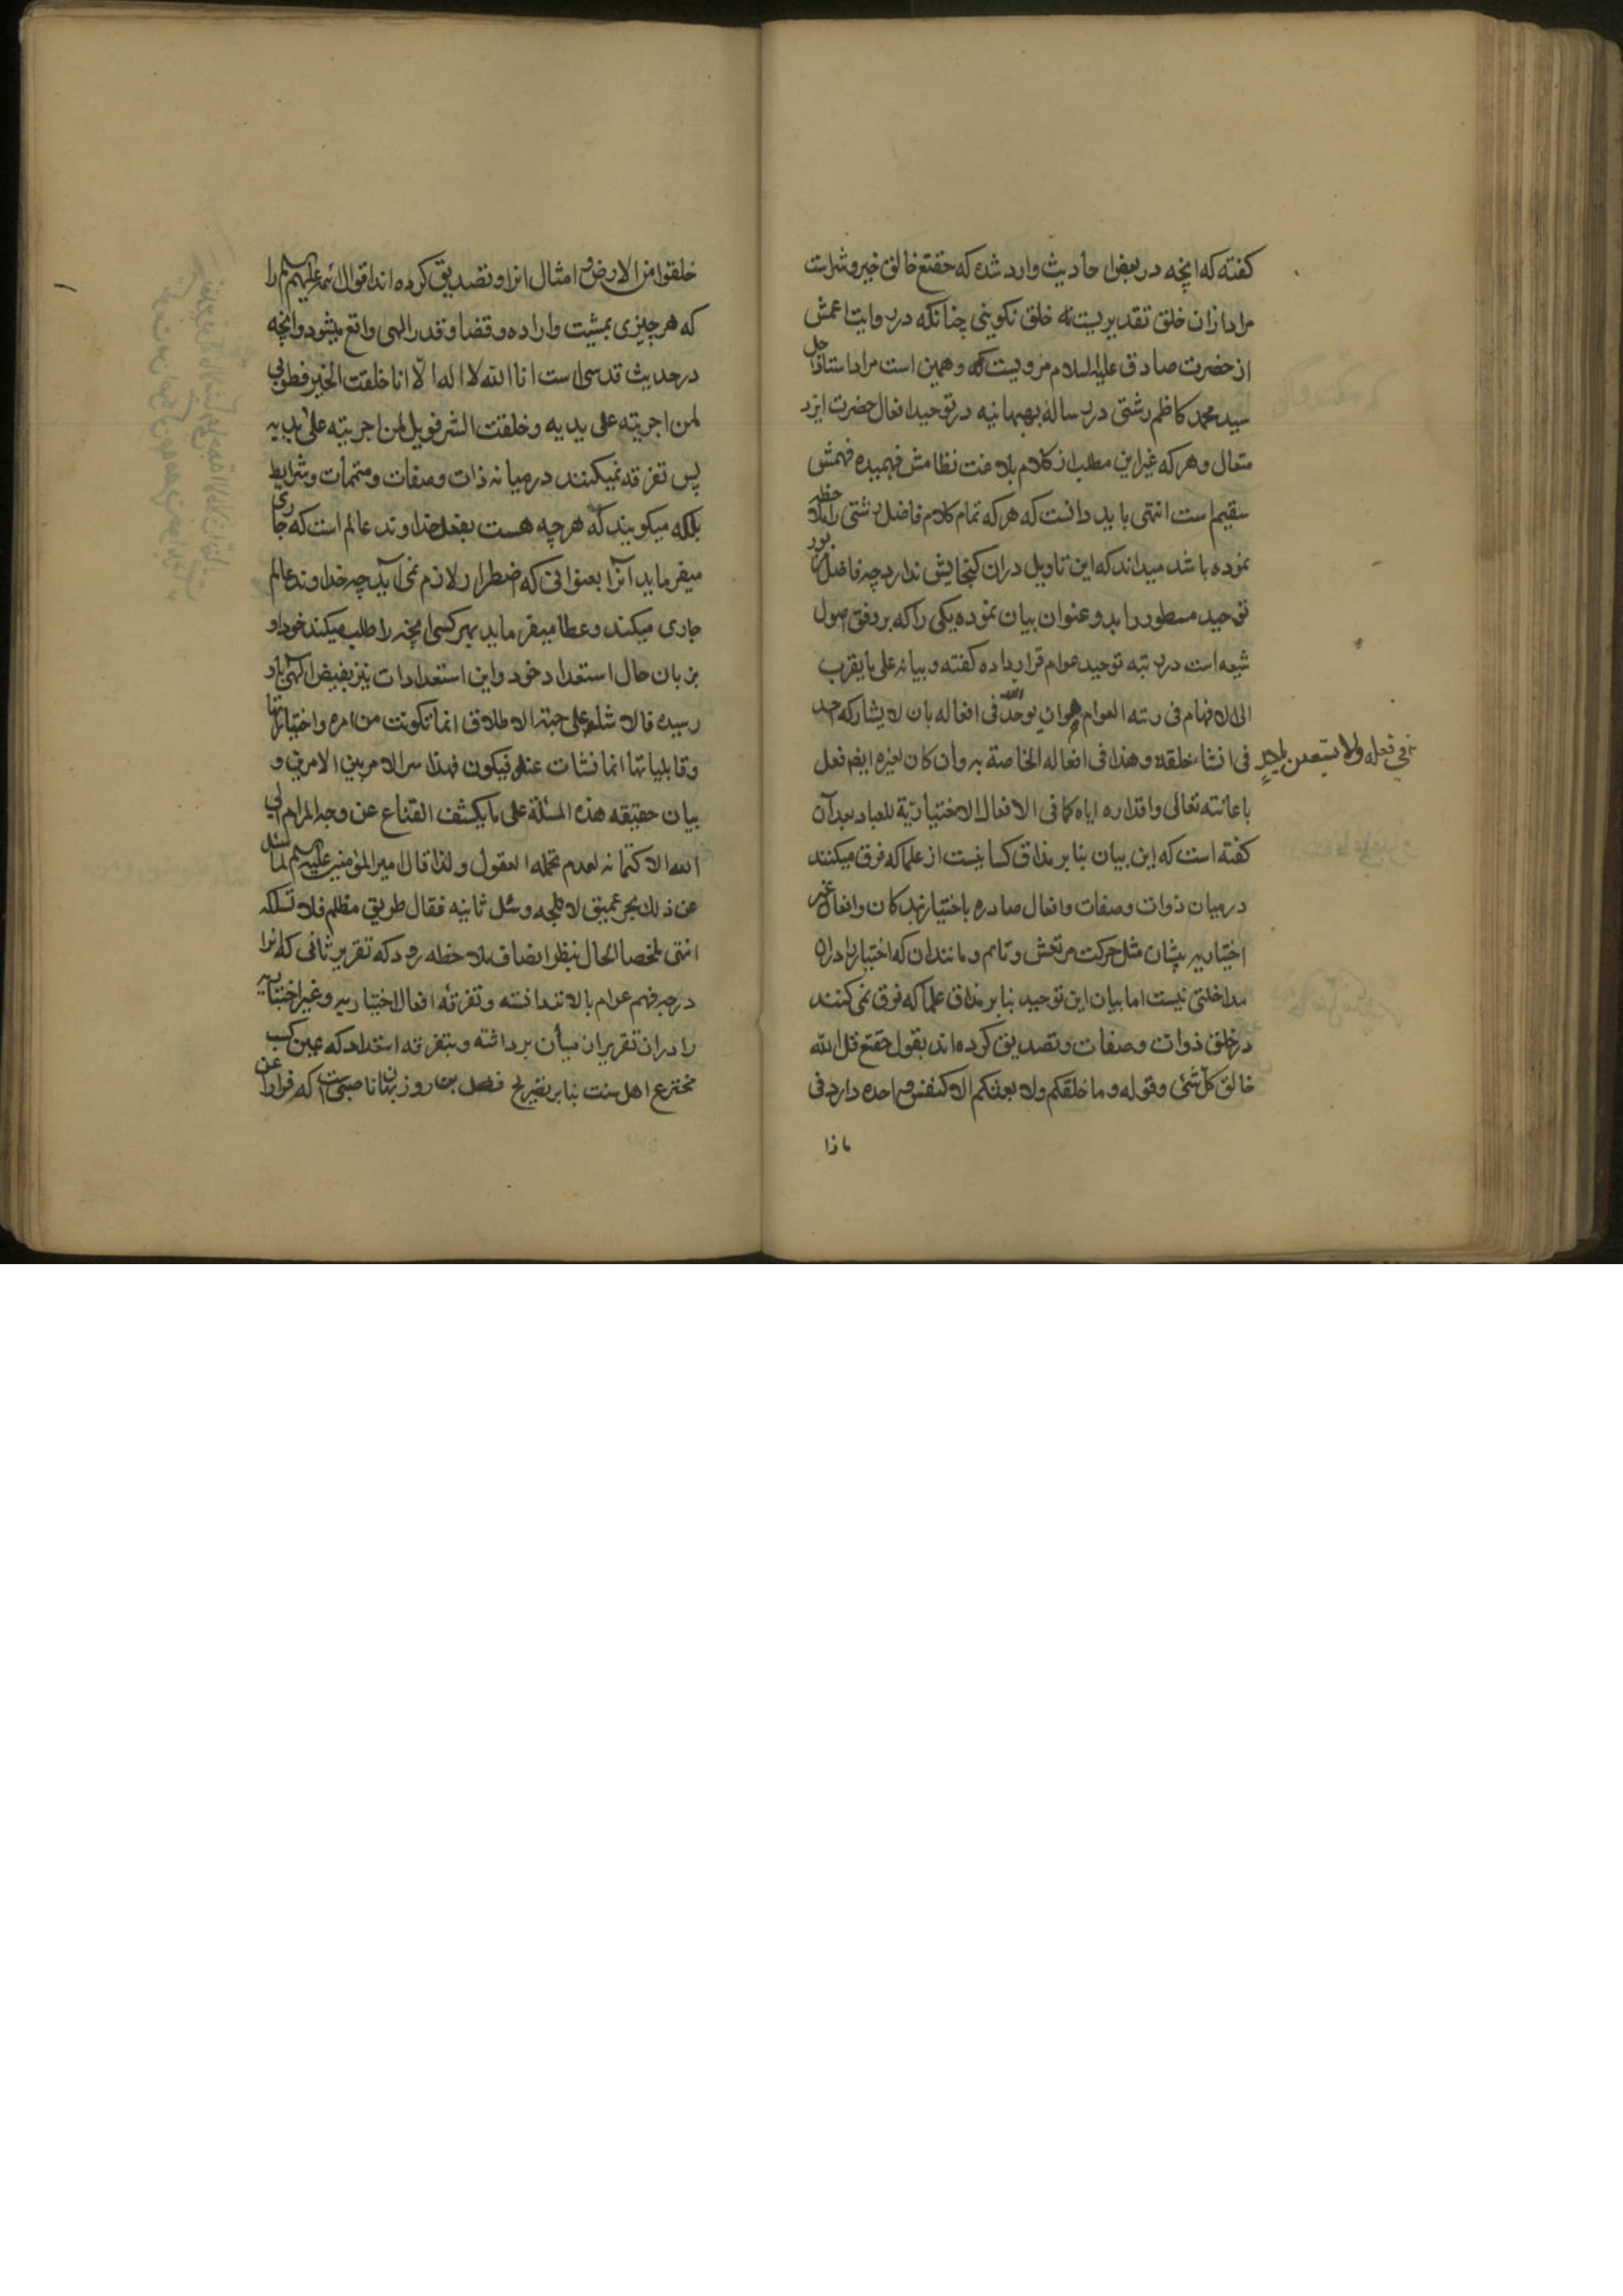 کفته که انچه در بعض احادیث وارد شده که حقتع خالق خیر و شر است
مراد ازان خلق تقدیریست نه خلق تکوینی چنانکه در روایت اعمش
از حضرت صادق علیه السلام مرویست که و همین است مراد استاذ اجل
سید محمد کاظم رشتی در رساله بهبهانیه در توحید افعال حضرت ایزد
متعال و هر که غیر این مطلب از کلام بلاغت نظامش فهمیده فهمش
سقیم است انتهی باید دانست که هر که تمام کلام فاضل رشتی را ملاحظه
نموده باشد میداند که این تاویل دران کنجایش ندارد چه فاضل مزبور
توحید مسطور را بدو عنوان بیان نموده یکی را که بر وفق اصول
شیعه است در رتبه توحید عوام قرار داده کفته و بیانه علی ما یقرب
الی الافهام فی رتبه العوام هو ان یوحد الله فی افعاله بان لا یشارکه احد
فی فعله ولا یستعین باحد
فی انشاء خلقه و هذا فی افعاله الخاصة به وان کان لغیره ایضا فعل
باعانته تعالی و اقداره ایاه کما فی الافعال الاختیاریّة للعباد بعد آن
کفته است که این بیان بنابر مذاق کسانیست از علما که فرق میکنند
در میان ذوات و صفات و افعال صادره باختیار بندکان و افعال غیر
اختیاریه یشان مثل حرکت مرتعش و نایم و مانند ان که اختیار را دران
مداخلتی نیست اما بیان این توحید بنابر مذاق علما که فرق نمی کنند
در خلق ذوات و صفات و تصدیق کرده اند بقول حقتع قل الله
خالق کل شئی و قوله و ما خلقکم ولا بعثکم الا کنفس واحده دارد فی
ماذا
خلقوا من الارض و امثال انرا و تصدیق کرده اند اقوال ائمه علیهم السلم را
که هر چیزی بمشیت و اراده و قضا و قدر الهی واقع میشود و انچه
در حدیث قدسی است انا الله لا اله الّا انا خلقت الخیر فطوبی
لمن اجریته علی یدیه و خلقت الشر فویل لمن اجریته علی یدیه
پس تفرقه نمیکنند در میانه ذات و صفات و متممات و شرایط
بلکه میکویند که هر چه هست بفعل خداوند عالم است که جاری
میفرماید آنرا بعنوانی که اضطرار لازم نمی آید چه خداوند عالم
جاری میکند و عطا میفرماید بهر کسی انچه را طلب میکند خود او
بزبان حال استعداد خود و این استعدادات نیز بفیض الهی باو
رسیده فالاشیاء علی جهة الاطلاق انما تکونت من امره و اختیاراتها
و قابلیاتها انما نشات عند فیکون فهذا سر الامر بین الامرین و
بیان حقیقه هذه المسئلة علی ما یکشف القناع عن وجه المرام ابی
الله الا کتمانه لعدم تحمله العقول ولذا قال امیر المؤمنین علیه السلم لما سئل
عن ذلک بحر عمیق لا تلجه و سئل ثانیه فقال طریق مظلم فلا تسلکه
انتهی ملخصا الحال بنظر انصاف ملاحظه رود که تقریر ثانی که انرا
درجه فهم عوام بالا تر دانسته و تفرقه افعال اختیاریه و غیر اختیاریه
را دران تقریر از میان برداشته و بتفرقه استعداد که عین کسب
مخترع اهل سنت بنابر بتصریح فضل بن روزبهان ناصبی است که فرارا عن